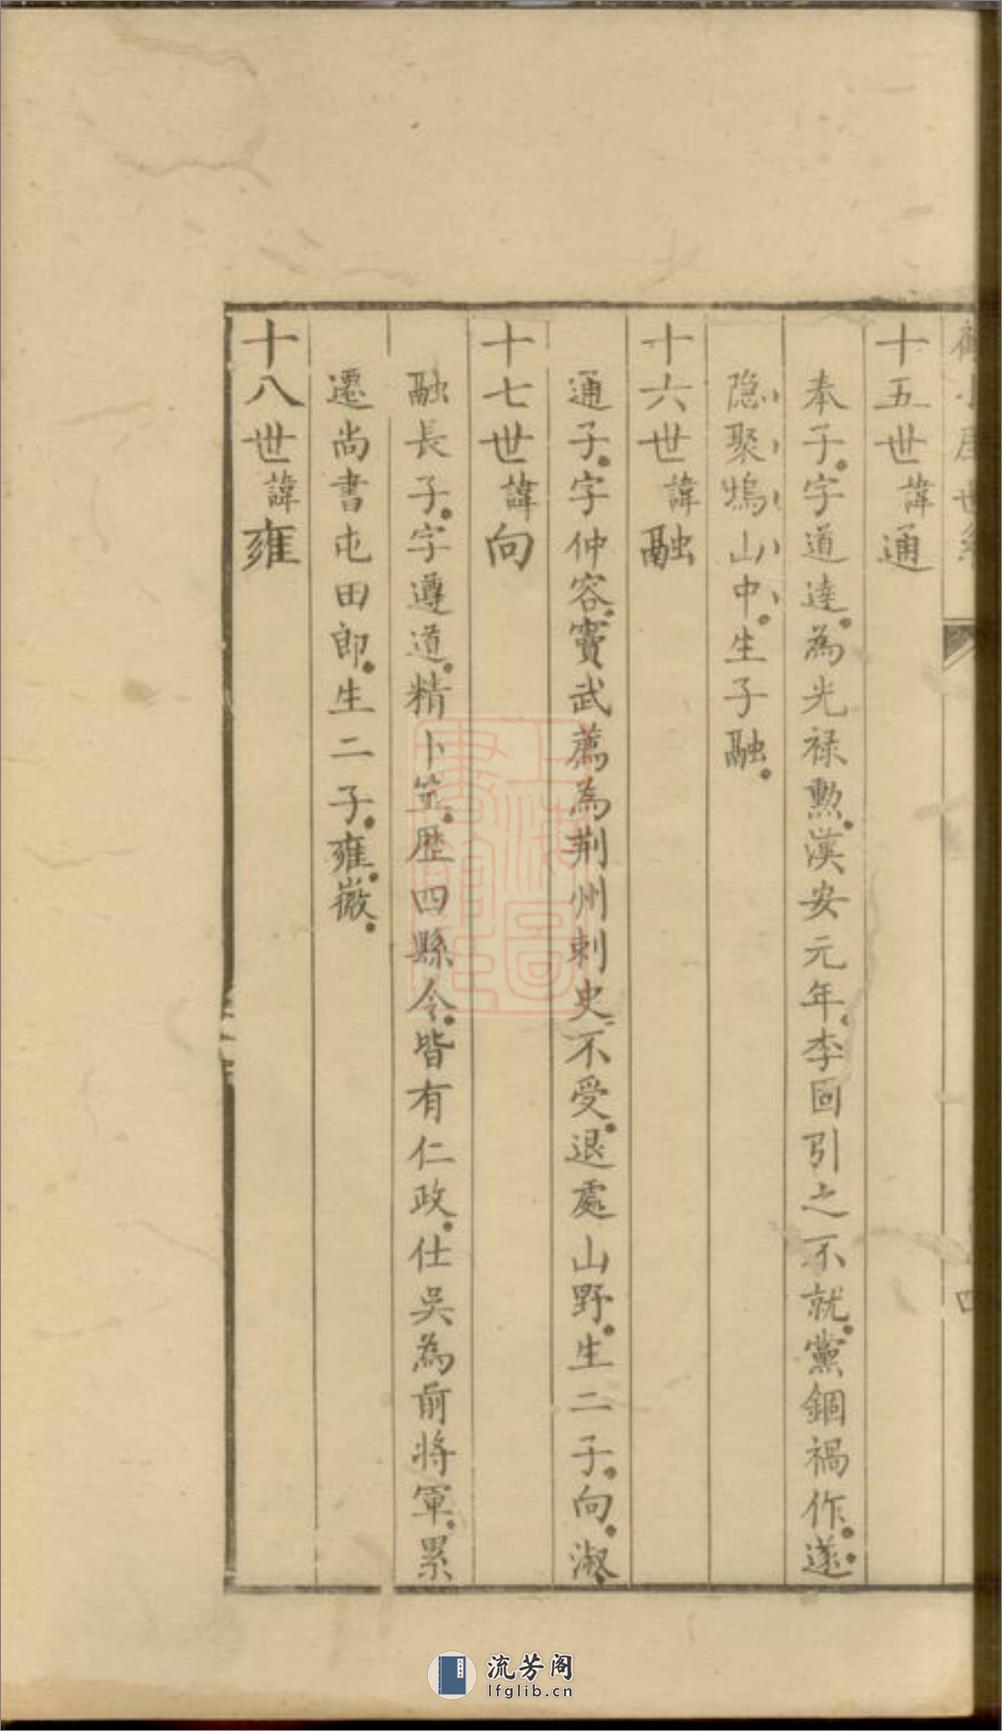 十五世諱通
奉子字道達為光禄勲漢安元年李固引之不就黨錮禍作遂
隐聚塢山中生子融
十六世諱融
通子字仲容竇武薦為荆州刺史不受退處山野生二子向淑
十七世諱向
融長子字遵道精卜筮歷四縣令皆有仁政仕吳為前將軍累
遷尚書屯田郎生二子雍徽
十八世諱雍
四
上海圖書館藏
流芳阁
lfglib.cn